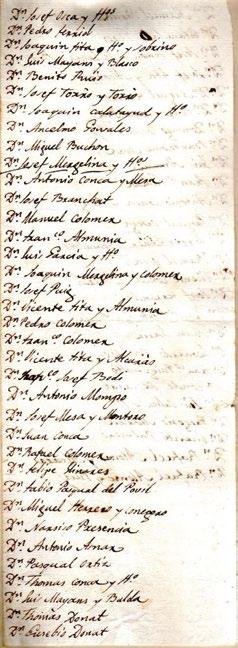 Dn Josef Osca y Hos
Dn Pedro Ferriol
Dn Joaquin tita, Ho y Sobrino
Dn Luis Mayans y Blasco
Dn Benito
Dn Josef Torro y Torro
Dn Joaquin Calatayud y Ho
Dn Ancelmo Gonzales
Dn Miguel Buchon
Dn Josef Mergelina y Hos
Dn Antonio Conca y Mesa
Dn Josef Branchat
Dn Manuel Colomer
Dn Franco Almunia
Dn Luis Garcia y Ho
Dn Joaquin Mergelina y Colomer
Dn Josef Puig
Dn Vicente tita y Almunia
Dn Pedro Colomer
Dn Franco Colomer
Dn Vicente tita y Alcaras
Dn Josef Bodi
Dn Antonio Mompo
Dn Josef Mesa y Montoro
Dn Juan Conca
Dn Rafael Colomer
Dn Felipe Linares
Dn Fabio Pasqual del Povil
Dn Miguel Herrero y
Dn Narsiso Presencia
Dn Antonio
Dn Pasqual Ortiz
Dn Thomas Conca y Ho
Dn Luis Mayans y Balda
Dn Thomas Donat
Dn Eusebio Donat